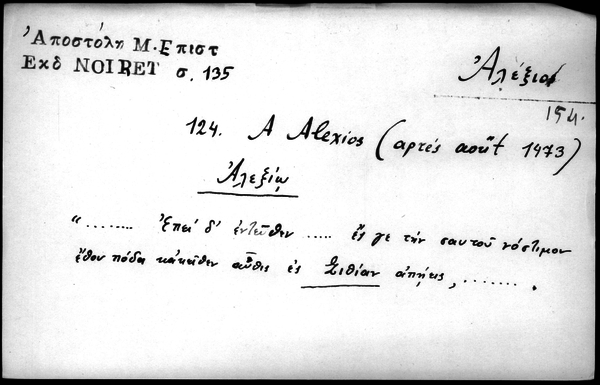 Ἀποστόλη Μ. Επιστ
Εκδ NOIRET σ. 135
Ἀλέξιος
154.
124. A Alexios (après août 1473)
Ἀλεξίῳ
“ ........ Ἐπεί δ' ἐντεῦθεν ..... ἔς γε τὴν σαυτοῦ νόστιμον
ἔθου πόδα κἀκεῖθεν αὖθις ἐς Σιθίαν ἀπῄεις, ....... .